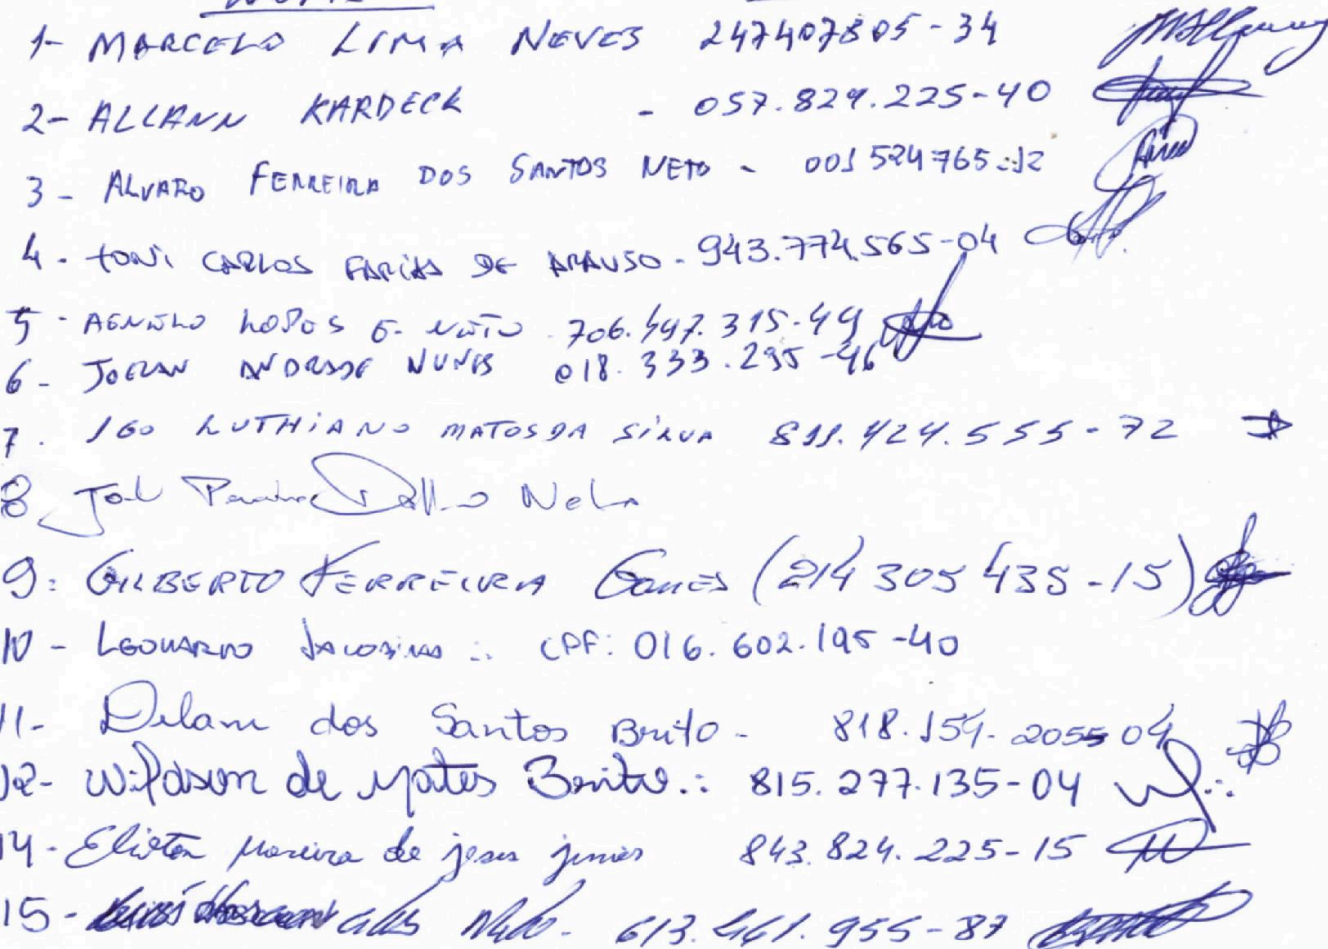 1- MARCELO LIMA NEVES 247407805-34
2- ALLANN KARDECK - 057.829.225-40
3- ALVARO FERREIRA DOS SANTOS NETO - 001 524 765-12
4- TONI CARLOS FARIAS DE ARAUJO - 943.774.565-04
5- LOPES NETO 706.497.315-49
6- ANDRADE NUNES 018.333.295-46
7. IGO LUTHIANO MATOS DA SILVA 811.424.555-72
8
9: GILBERTO FERREIRA GOMES (214 305 435-15)
10- LEONARDO JACOBINA .: CPF: 016.602.195-40
11- dos Santos Brito - 818.154.
12- Wildson de Matos Brito.: 815.277.135-04
14- Eliéton Moreira de jesus junior 843.824.225-15
15- 613.461.955-87